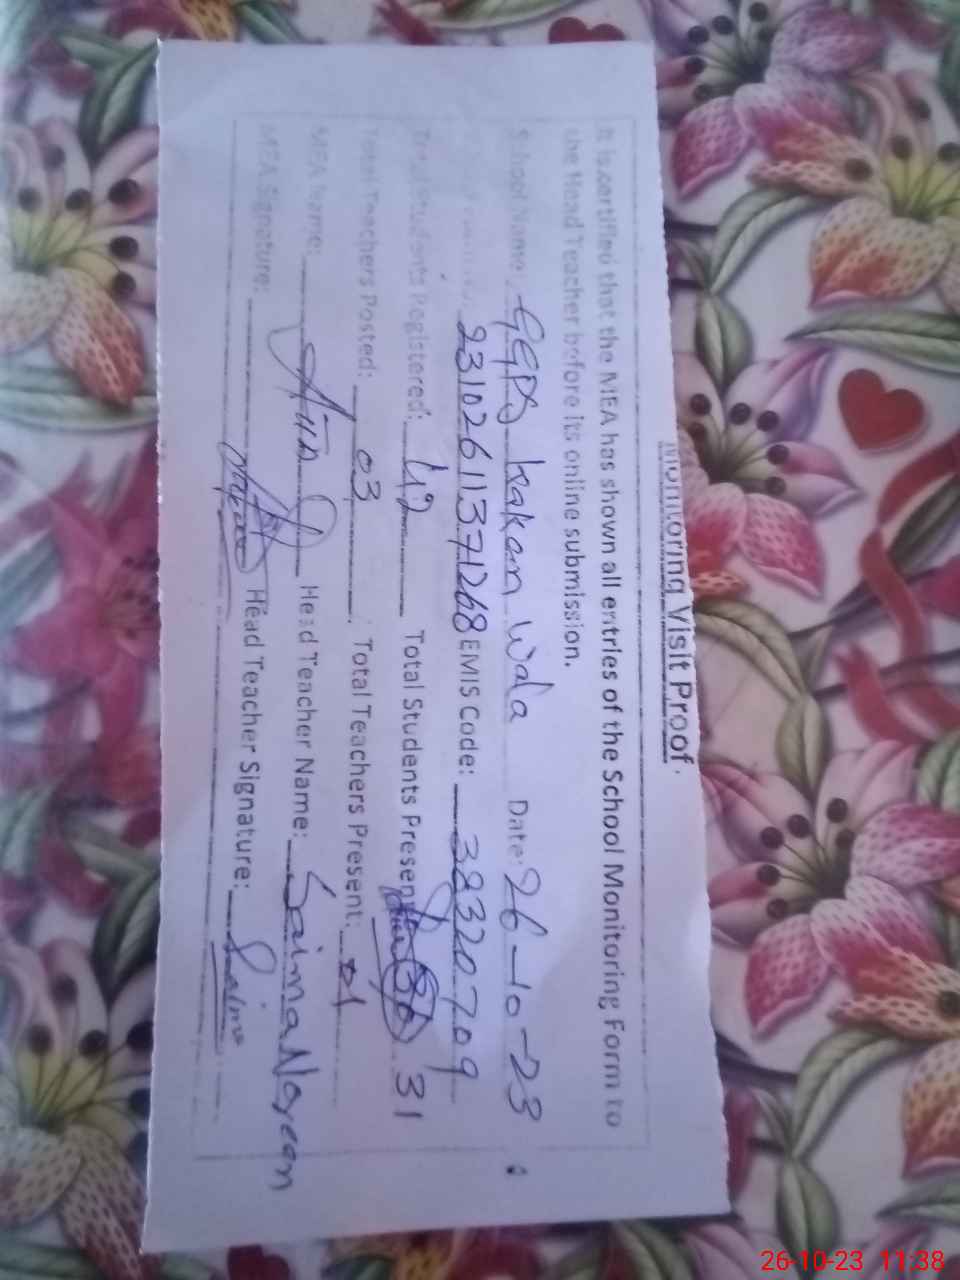 Monitoring Visit Proof
It is certified that the MEA has shown all entries of the School Monitoring Form to
the Head Teacher before its online submission.
School Name: GGPS kakan Wala Date: 26-10-23
23102611371268 EMIS Code: 38320709
Total Students Registered: 42 Total Students Present 31
Total Teachers Posted: 03 Total Teachers Present: 01
MEA Name: Head Teacher Name: Saima Noreen
MEA Signature: Head Teacher Signature: Saima
26-10-23 11:38